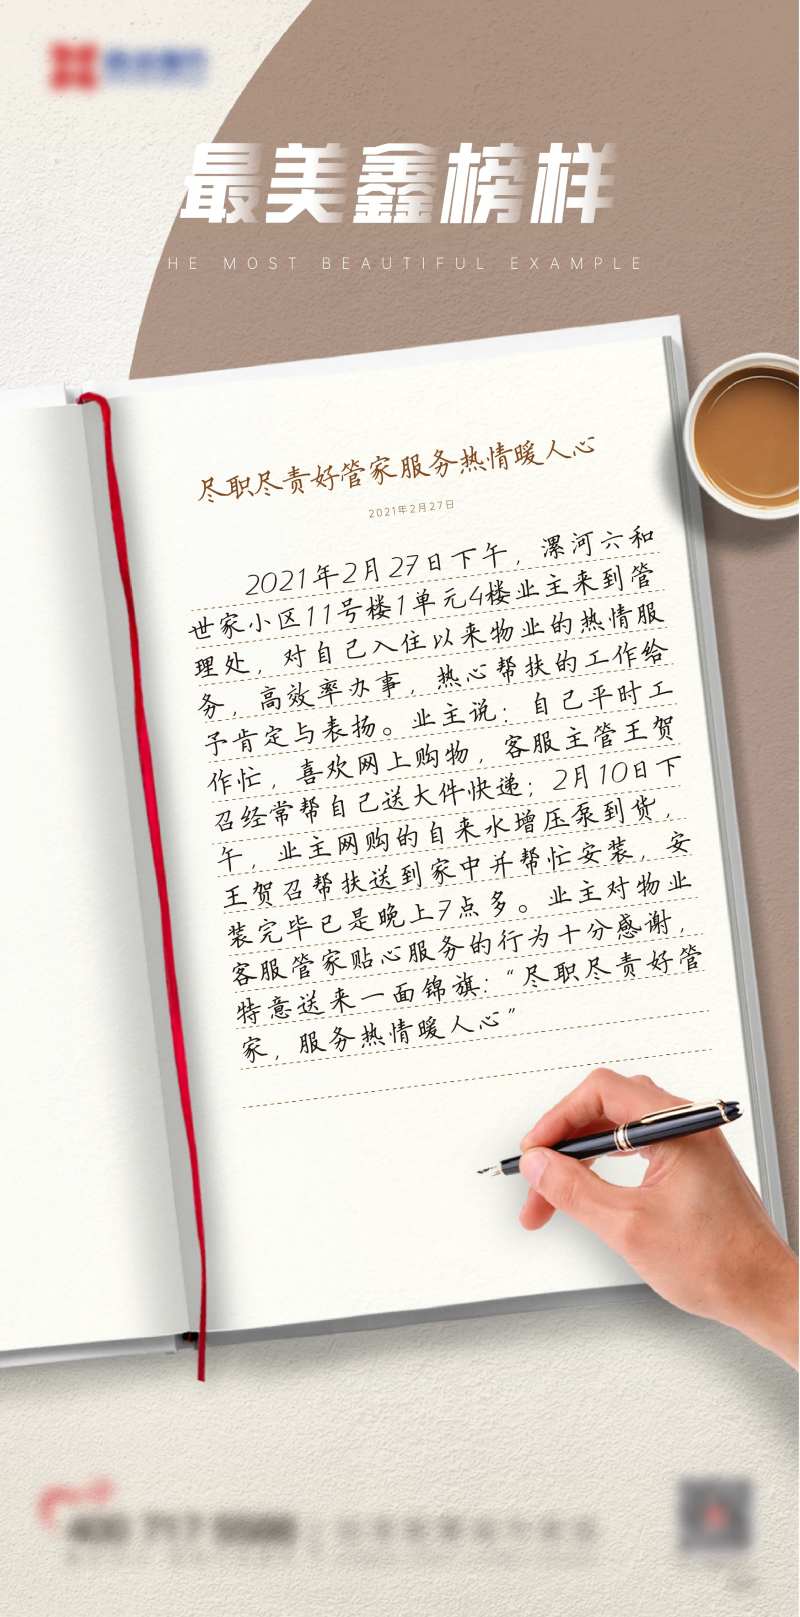 最美鑫榜样
HE MOST BEAUTIFUL EXAMPLE
尽职尽责好管家服务热情暖人心
2021年2月27日
2021年2月27日下午，漯河六和
世家小区11号楼1单元4楼业主来到管
理处，对自己入住以来物业的热情服
务，高效率办事，热心帮扶的工作给
予肯定与表扬。业主说：自己平时工
作忙，喜欢网上购物，客服主管王贺
召经常帮自己送大件快递；2月10日下
午，业主网购的自来水增压泵到货，
王贺召帮扶送到家中并帮忙安装，安
装完毕已是晚上7点多。业主对物业
客服管家贴心服务的行为十分感谢，
特意送来一面锦旗：“尽职尽责好管
家，服务热情暖人心”